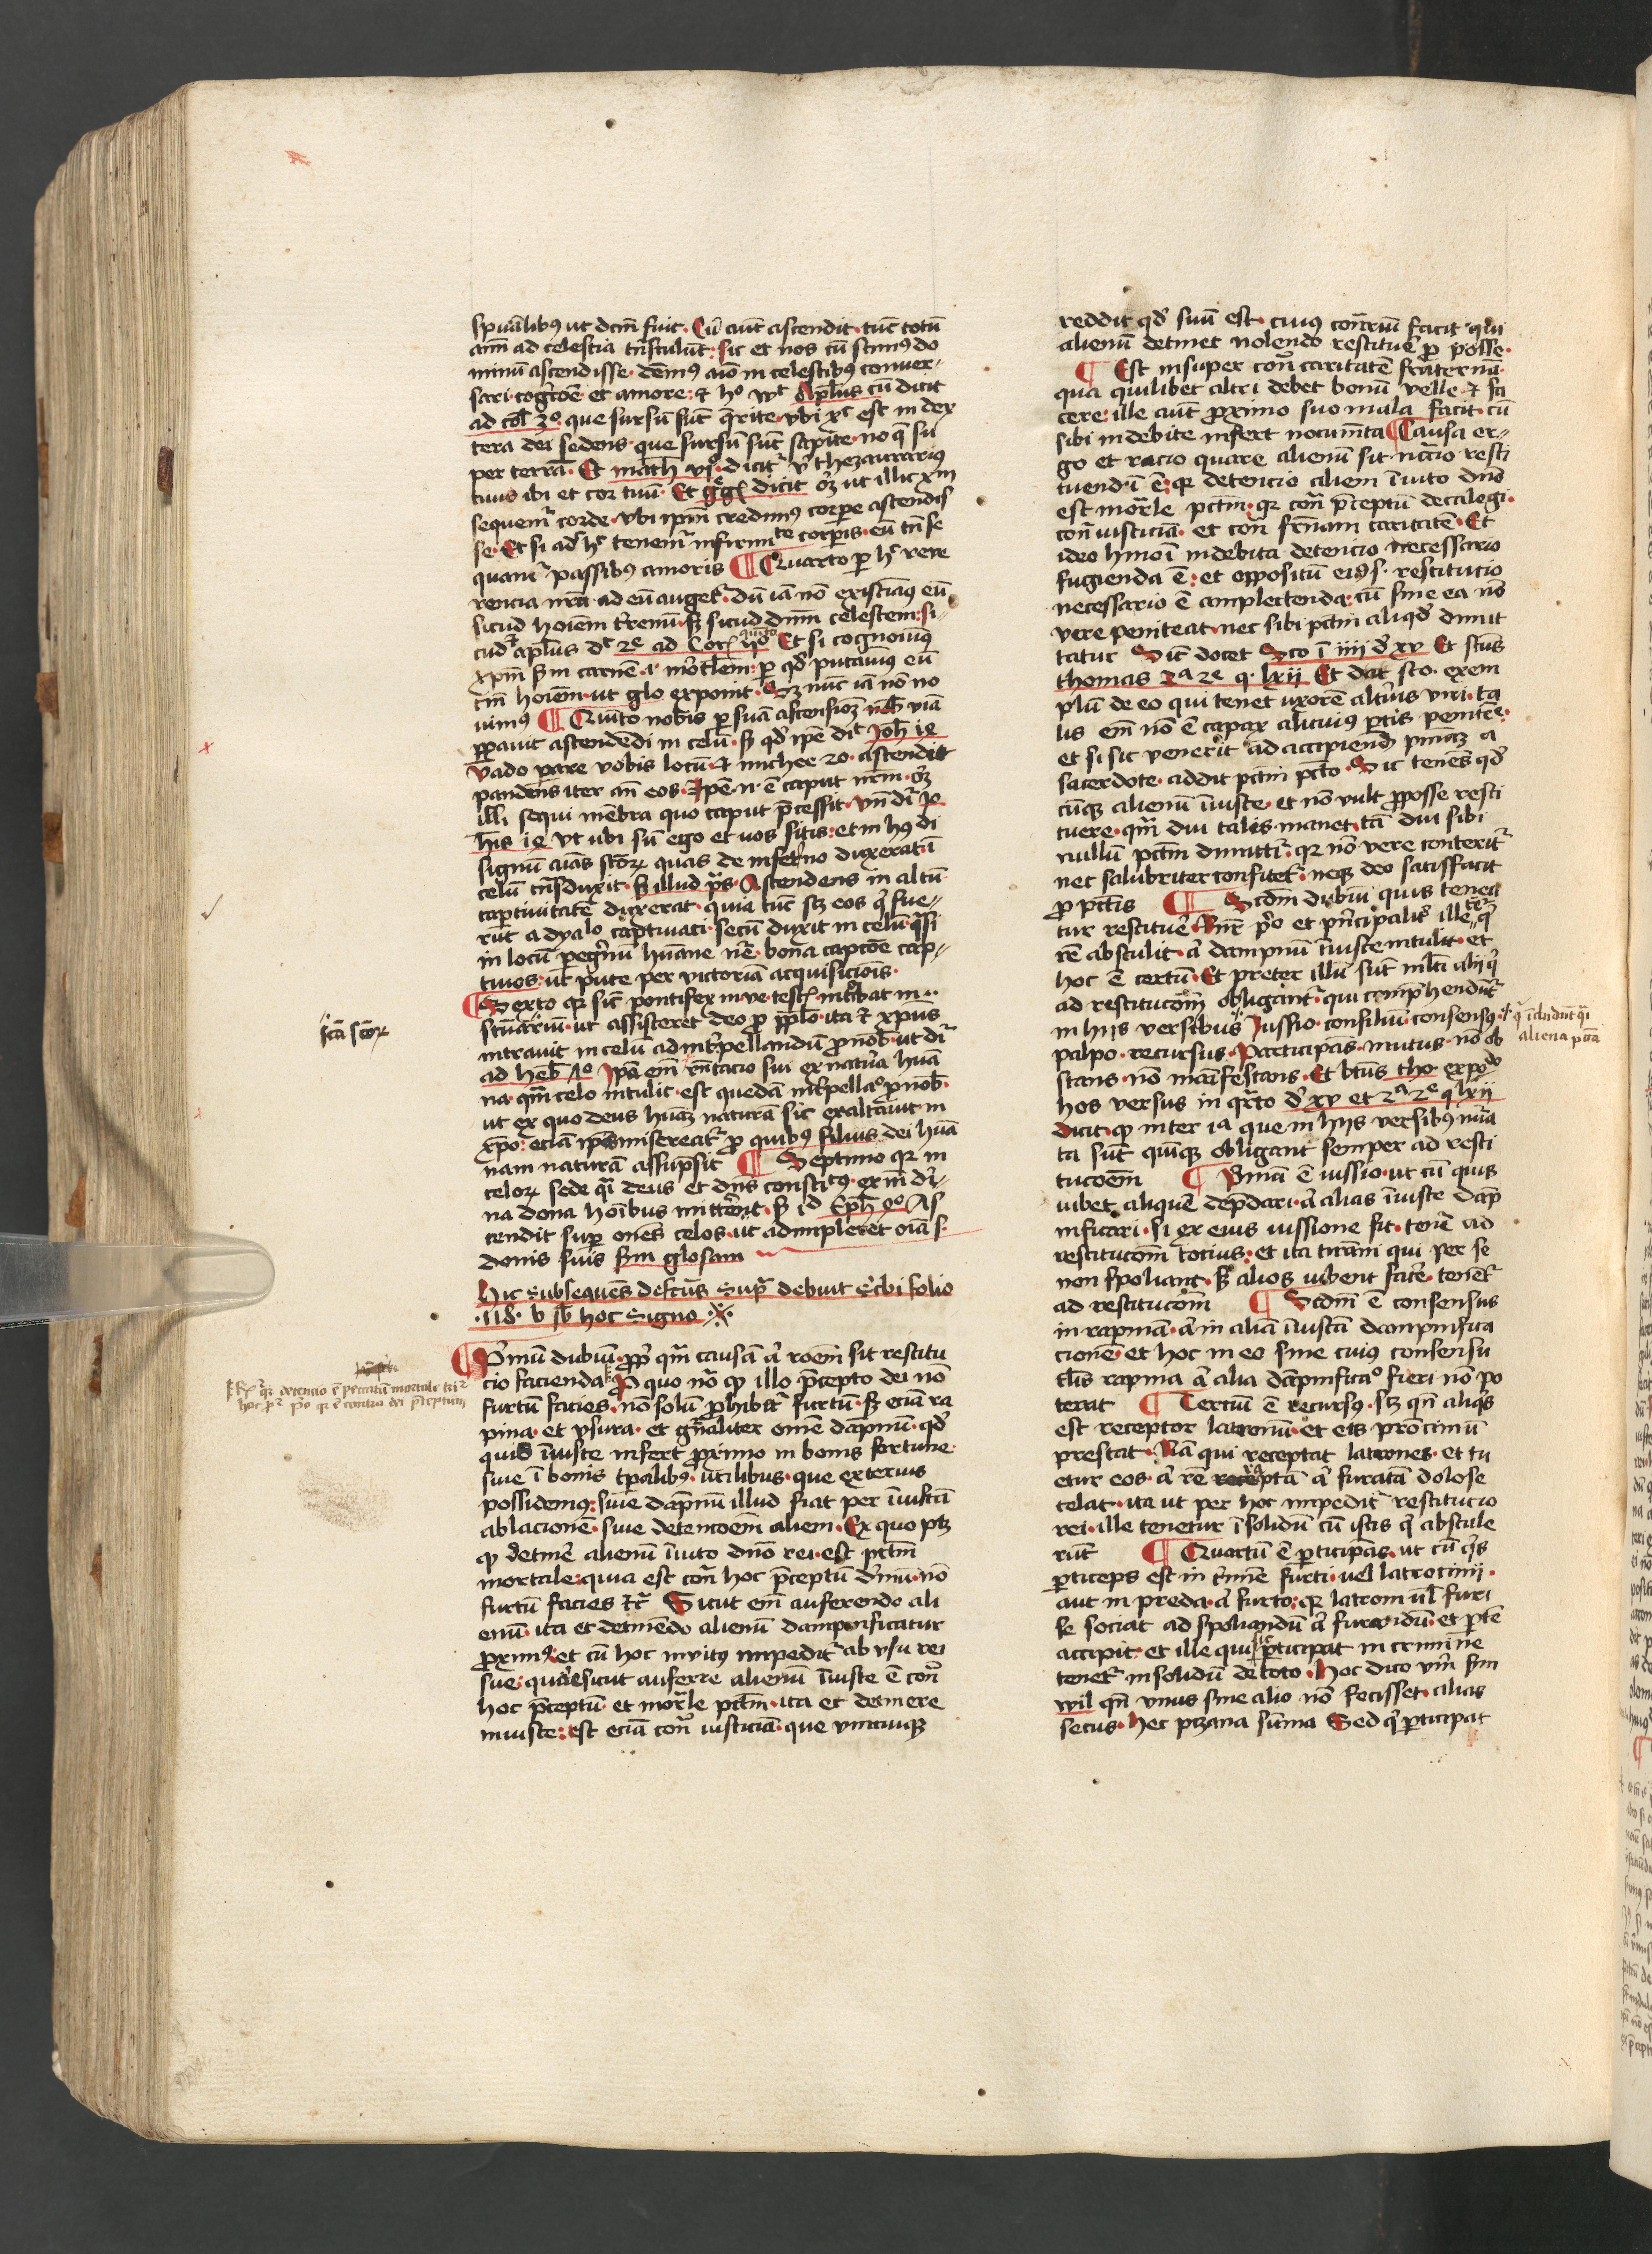 spūalibꝯ ut dc̄m fuit. Cū aūt ascendit. tūc totū
aīm ad celestia tn̄stulūt: sic et nos cū scimꝯ do
minū ascendisse. dēmꝯ aīo in celestibꝯ conuer-
sari. et amore: Apl̄us cū dicit
ad col̄ 3º. que sursū sūt q̄rite. vbi xᶜ est in dex
tera dei sedens. que sursū sūt sapite. nō q̄ sū
per terrā. Et math̄ vjº. dicitᷣ thezaurarius
tuus ibi et cor tuū. Et dicit ut illic xᷣm
sequemᷣ corde. vbi ip̄m credimꝯ corpore ascendis
se. Et si adᷣ hᶜ tenemᷣ infirmitate corporis. eū tn̄ se
quamᷣ passibꝯ amoris ¶ Quarto ꝑ hᶜ reue
rencia nr̄a ad eū augetᷣ. dū iā nō existīamꝯ eū
sicud hoīem tᷣrenū. sꝫ sicud dn̄m celestem: si
cudᷣ apl̄us dᶜ 2ᵉ ad Corꝭ vº quinto Et si cognouimꝯ
xp̄m sm̄ carnē. ꝑ qd̄ putauimꝯ eū
tm̄ hoīem. ut glo exponit. Sꝫ nūc iā nō no
uimꝯ ¶ Quīto nobis ꝑ suā ascensioꝫ viā
ꝑauit ascendēdi in celū. sꝫ qd̄ ipē diᶜ Joh̄ 14
vado parare vobis locū. et michee 2o. ascendit
pandens iter an̄ eos. Ipē n̄ ē caput nr̄m.
illi sequi mēbra quo caput p̄cessit. vn̄ dᷣ Jo
h̄is 14 vt ubi sū ego et uos sitis: et in hꝯ
signū aīas sc̄oꝝ quas de inferno dixerat ī
celū tn̄sduxit. illud p̄s. Ascendens in altū
captiuitatē duxerat. quia tūc scꝫ eos qͥ fue-
rūt a dyalo captiuati. secū duxit in celū qᷓsi
in locū peregͥnū huane nr̄e. bona capcōe cap-
tiuos: ut pute per victoriā acquisicionis.
¶ Sexto qꝛ sic̄ pontifex in ve. testꝭ. intᷣbat in..
sc̄uariū. ut assisteret deo ꝓ ppl̄o. ita et xp̄us
intrauit in celū ad intᷣpellandū ꝓ nob̄. ut dᷣ
ad heb̄ Ipā em̄ sui ex natura huā
na. qm̄ celo intulit. est quedā intᷣpellaº ꝓ nob̄.
ut ex quo deus huāꝫ naturā sic exaltauit in
xp̄o: eciā ipis misereatᷣ ꝓ quibꝯ filius dei huā
nam naturā assūpsit ¶ Septimo qꝛ in
celoꝝ sede qͣi deus et dn̄s consti.tꝯ. exīn dͥ-
na dona hoībus mittᷣet. id Eph̄ 4º. As
cendit supᷣ om̄es celos. ut adimpleret oīa s.
donis suis sm̄ glosam
Hic subsequēs defcūs supᷣ debuit scͥbi folio
.118. b sb̄ hoc signo ※
¶ Pͥmū dubiū. ꝓp qm̄ causā aut rōem sit restitu
cio facienda. Pro quo nō qꝫ illo p̄cepto dei nō
furtū facies. nō solū ꝓhibetᷣ furtū. sꝫ eciā ra
pina. et vsura. et gn̄aliter om̄e dāpnū. qd̄
quid īiuste infert ꝓximo in bonis fortune.
siue ī bonis tp̄alibꝯ. utilibus. que exterius
possidemꝯ: siue dāpnū illud fiat per īiustā
ablacionē. siue detencōem alieni. Ex quo ptꝫ
qꝫ detinere alienū īuito dn̄o rei. est pctm̄
mortale: quia est conᷣ hoc p̄ceptū dͥnū. nō
furtū facies etᷓ Sicut em̄ auferendo ali
enū. ita et detinēdo alienū dampnificatur
ꝓximꝯ et cū hoc inuitꝯ impeditᷣ ab vsu rei
sue: quare sicut auferre alienū īiuste ē conᷣ
hoc p̄ceptū. et moᷣtale pctm̄. ita et detinere
iniuste: est eciā conᷣ iusticiā. que vnicuiqꝫ
sc̄a sc̄oꝝ
hoc pꝫ pᷣo qꝛ ē contra dei p̄ceptum
reddit qd̄ suū est. cuius conᷣriū facit qui
alienū detinet nolendo restituere ꝓ posse.
¶ Est insuper conᷣ caritatē fraternā.
qua quilibet altᷣi debet bonū velle. et fa
cere: ille aūt ꝓximo suo mala facit. cū
sibi indebite infert nocum̄ta ¶ Causa er-
go et racio quare alienū sit ncc̄io resti
tuendū ē: qꝛ detencio alieni īuito dn̄o
est moᷣtale pctm̄: qꝛ conᷣ p̄ceptū decalogi.
conᷣ iusticiā. et conᷣ fr̄nam caritatē. Et
ideo hmōi indebita detencio necessario
fugienda ē: et oppositū eiꝯ s. restitutio
necessario ē amplectenda: cū sine ea nō
vere peniteat. nec sibi pctm̄ aliqd̄ dimit
tatur Sic̄ docet Sco ī iiij d̄ xv Et sc̄us
thomas 2ᵃ 2ᵉ q. lxii Et dat sco. exem
plū de eo qui tenet uxorē altius viri. ta
lis em̄ nō ē capax alicuiꝯ ꝑtis penitēe.
et si sic venerit ad accipiend̄ pn̄iaꝫ a
sacerdote. addit pctm̄ pctō. Sic tenēs qd̄
cūqꝫ alienū īiuste. et nō vult ꝓ posse resti
tuere. qm̄ diu talis manet. tā diu sibi
nullū pctm̄ dimittiᷣ. qꝛ nō vere conteritᷣ
nec salubriter confitetᷣ. neqꝫ deo satisfacit
ꝓ pctīs ¶ Scdm̄ dubiū quis tenea
tur restituere. Rn̄r pͥo et pn̄cipaliter ille tenetᷣ qͥ
rē abstulit. aut dampnū īiuste intulit. et
hoc ē certū. Et preter illū sūt ml̄ti alij qͥ
ad restitucōem obligantᷣ. qui comp̄hendūtᷣ
in hijs versibus Jussio. consiliū. consensꝯ.
palpo. recursus. Participās. mutus. nō ob
stans. nō manifestans. Et bt̄us tho expōdo
hos versus in qͣrto d̄ xv et 2ᵃ 2ᵉ q lxii
Dicit. qꝫ inter iᵃ que in hijs versibꝯ nūra
ta sūt quīqꝫ obligant semper ad resti
tucōem ¶ Pͥmū ē iussio. ut cū quis
iubet aliquē dep̄dari. aut alias īiuste dāp
nificari. si ex eius iussione fit. tenetᷣ ad
restitucōem totius. et ita tiranni qui per se
non spoliant. sꝫ alios iubent facere. tenētᷣ
ad restitucōem ¶ Scdm̄ ē consensus
in rapinā. aut in aliā īiustā dampnifica
cionē. et hoc in eo sine cuius consensu
tl̄is rapina aut alia dāpnificaº fieri nō po
terat ¶ Tertiū ē recursꝯ. scꝫ qn̄ aliqͥs
est receptor latronū. et eis ꝓtrociniū
prestat. Nā qui receptat latrones. et tu
etur eos. aut rē receptā aut furatā dolose
celat. ita ut per hoc impeditᷣ restitucio
rei. ille tenetur ī solidū cū istis qͥ abstule
rūt ¶ Quartū ē ꝑticipās. ut cū qͥs
ꝑticeps est in cͥmine furti. uel latrocinij.
aut in preda. aut furto: qꝛ latroni ul̄ furi
se sociat ad spoliandū aut furandū. et ꝑtē
accipit. et ille qui sic ꝑticipat in crimine
tenetᷣ in solidū de toto. Hoc dico verū sm̄
wil qn̄ vnus sine alio nō fecisset. alias
secus. Hec pizana sūma Sed qͥ ꝑticipat
qͥ īcludūt qͣi
aliena pctā